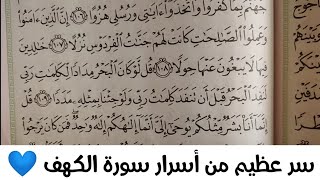 جَهَنَّمُ بِمَا كَفَرُوا۟ وَٱتَّخَذُوٓا۟ ءَايَـٰتِى وَرُسُلِى هُزُوًا ١٠٦ إِنَّ ٱلَّذِينَ ءَامَنُوا۟
وَعَمِلُوا۟ ٱلصَّـٰلِحَـٰتِ كَانَتْ لَهُمْ جَنَّـٰتُ ٱلْفِرْدَوْسِ نُزُلًا ١٠٧ خَـٰلِدِينَ
فِيهَا لَا يَبْغُونَ عَنْهَا حِوَلًا ١٠٨ قُل لَّوْ كَانَ ٱلْبَحْرُ مِدَادًا لِّكَلِمَـٰتِ رَبِّى
لَنَفِدَ ٱلْبَحْرُ قَبْلَ أَن تَنفَدَ كَلِمَـٰتُ رَبِّى وَلَوْ جِئْنَا بِمِثْلِهِۦ مَدَدًا ١٠٩ قُلْ
إِنَّمَآ أَنَا۠ بَشَرٌ مِّثْلُكُمْ يُوحَىٰٓ إِلَىَّ أَنَّمَآ إِلَـٰهُكُمْ إِلَـٰهٌ وَٰحِدٌ فَمَن كَانَ يَرْجُوا۟
سر عظيم من أسرار سورة الكهف 💙